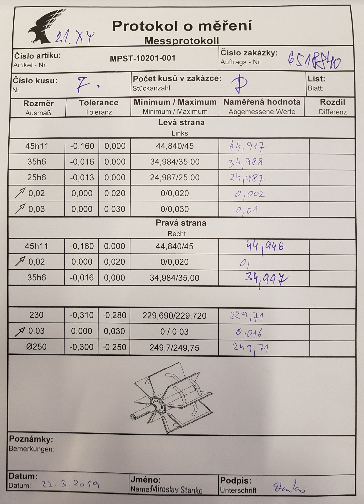 Protokol o měření
Messprotokoll
Číslo artiklu:
Artikel - Nr
MPST-10201-001
Číslo zakázky:
Auftrags - Nr
Číslo kusu:
N.
7.
Počet kusů v zakázce:
Stückanzahl
List:
Blatt:
Rozměr Tolerance Minimum / Maximum Naměřená hodnota Rozdíl
Ausmaß Toleranz Minimum / Maximum Abgemessene Werte Differenz
Levá strana
Links
45h11 -0,160 0,000 44,840/45 44,917
35h6 -0,016 0,000 34,984/35,00 34,988
25h6 -0,013 0,000 24,987/25,00
0,02 0,000 0,020 0/0,020 0,002
0,03 0,000 0,030 0/0,030 0,01
Pravá strana
Recht
45h11 -0,160 0,000 44,840/45 44,946
0,02 0,000 0,020 0/0,020
35h6 -0,016 0,000 34,984/35,00
230 -0,310 -0,280 229,690/229,720 229,71
0,03 0,000 0,030 0 / 0,03 0,016
Ø250 -0,300 -0,250 249,7/249,75 249,71
Poznámky:
Bemerkungen:
Datum:
Datum: 22.3.2019
Jméno:
Name: Miroslav Stanko
Podpis:
Unterschrift